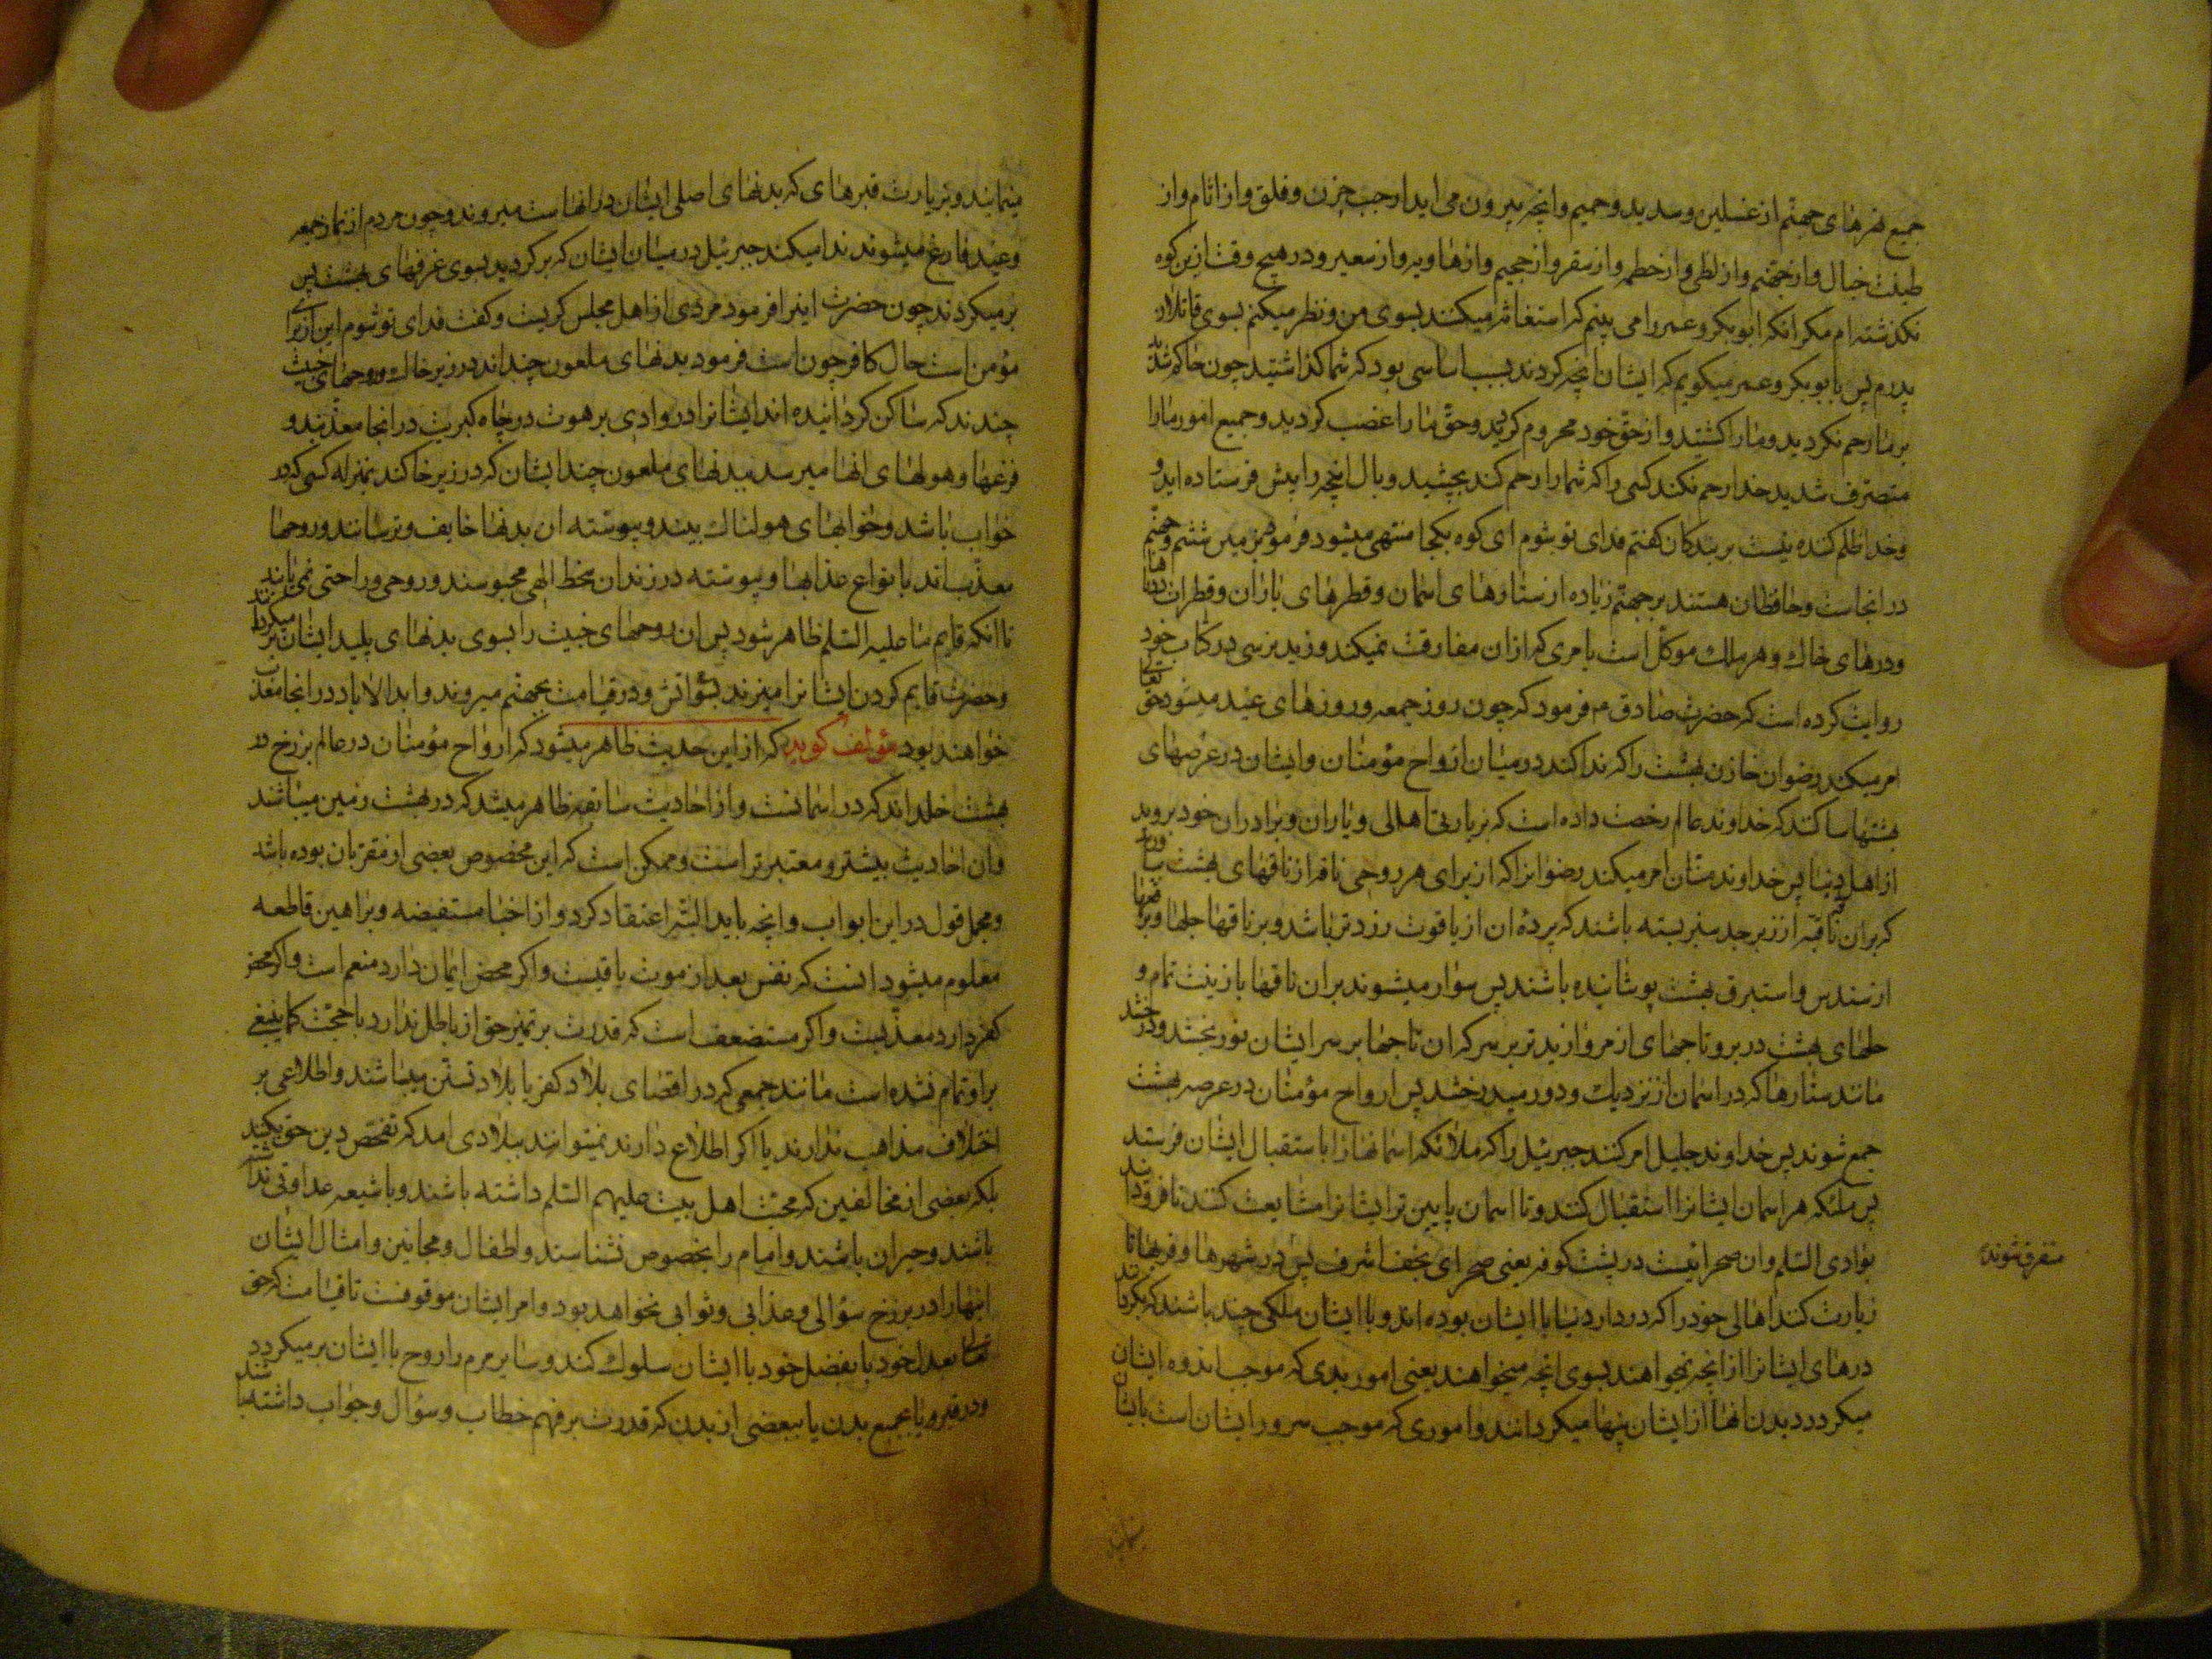 جمیع نهرهای جهنّم از غسلین و صدید و حمیم و آنچه بیرون می اید از جب حزن و فلق و از اثام و از
طینت خبال و از جهنّم و از لظی و از حطمه و از سقر و از جحیم و از هاویه و از سعیر و در هیچ وقت ازین کوه
نکذشته ام مکر انکه ابوبکر و عمر را می بینم که استغاثه میکنند بسوی من و نظر میکنم بسوی قاتلان
پدرم پس با ابوبکر و عمر میکویم که ایشان انچه کردند بسبب اساسی بود که شما کذاشتید چون حاکم شدید
بر ما رحم نکردید و ما را کشتید و از حقّ خود محروم کردید و حقّ ما را غصب کردید و جمیع امور ما را
متصرّف شدید خدا رحم نکند کسی را که شما را رحم کند بچشید وبال انچه را پیش فرستاده اید و
وخدا ظلم کننده نیست بر بندکان کفتم فدای تو شوم ای کوه بکجا منتهی میشود فرمود بزمین ششم و جهنّم
در انجاست و حافظان هستند بر جهنّم زیاده از ستارهای اسمان و قطرهای باران و قطرات دریاها
و درهای خاک و هر ملک موکّل است بامری که ازان مفارقت نمیکند و زید نرسی در کتاب خود
روایت کرده است که حضرت صادق م فرمود که چون روز جمعه و روزهای عید میشود حق تعالی
امر میکند رضوان خازن بهشت را که ندا کند در میان ارواح مؤمنان و ایشان در عرصهای
بهشتها ساکنند که خداوند عالم رخصت داده است که بزیارت اهالی و یاران و برادران خود بروید
از اهل دنیا پس خداوند منّان امر میکند رضوانرا که از برای هر روحی ناقه از ناقهای بهشت بیاورند
که بران ناقه قبّه از زبرجد سبز بسته باشند که پرده ان از یاقوت زرد تر باشد و بر ناقها جلها و برقعها
از سندس و استبرق بهشت پوشانیده باشند پس سوار میشوند بران ناقها با زینت تمام و
حلهای بهشت در بر و تاجهای از مروارید تر بر سر که ان تاجها بر سر ایشان نور بخشد و درخشند
مانند ستارها که در اسمان از نزدیک و دور میدرخشد پس ارواح مؤمنان در عرصه بهشت
جمع شوند پس خداوند جلیل امر کنند جبرئیل را که ملائکه اسمانها را باستقبال ایشان فرستد
پس ملئکه هر اسمان ایشانرا استقبال کنند و تا اسمان پایین تر ایشانرا مشایعت کنند تا فرود ایند
بوادی السّلم و ان صحرائیست در پشت کوفه یعنی صحرای نجف اشرف پس در شهرها و قریها تا
متفرق شوند
زیارت کنند اهالی خود را که در دار دنیا با ایشان بوده اند و با ایشان ملکی چند باشند که بکردانند
درهای ایشانرا از انچه نخواهند بسوی انچه میخواهند یعنی امور بدی که موجب اندوه ایشان
میکردد دیدن انها از ایشان پنهان میکردانند و اموری که موجب سرور ایشان است بایشان
مینمایند و بزیارت قبرهای که بدنهای اصلی ایشان در انهاست میروند و چون مردم از نماز جمعه
و عید فارغ میشوند ندا میکند جبرئیل در میان ایشان که برکردید بسوی غرفهای بهشت پس
برمیکردند چون حضرت اینرا فرمود مردی از اهل مجلس کریست و کفت فدای تو شوم این از برای
مؤمن است حال کافر چون است فرمود بدنهای ملعون چنداند در زیر خاک و روحهای خبیث
چندند که ساکن کردانیده اند ایشانرا در وادی برهوت در چاه کبریت در انجا معذّبند و
فزعها و هولهای انها میرسد ببدنهای ملعون چند ایشان که در زیر خاکند بمنزله کسی که در
خواب باشد و خوابهای هولناک بیند و پیوسته ان بدنها خایف و ترسانند و روحها
معذّب اند بانواع عذابها و پیوسته در زندان سخط الهی محبوسند و روحی و راحتی نمی یابند
تا انکه قایم ما علیه السّلم ظاهر شود پس ان روحهای خبیث را بسوی بدنهای پلید ایشان برمیکردانند
و حضرت قایم کردن ایشانرا میزند بسؤ اتش و در قیامت بجهنّم میروند و ابد الاباد در انجا معذّب
خواهند بود مؤلف کوید که از این حدیث ظاهر میشود که ارواح مؤمنان در عالم برزخ در
بهشت خلداند که در اسمانست و از احادیث سابقه ظاهر میشد که در بهشت زمین میباشند
وان احادیث بیشتر و معتبرتر است و ممکن است که این مخصوص بعضی از مقرّبان بوده باشد
و مجمل قول در این ابواب و انچه باید البتّه اعتقاد کرد و از اخبار مستفیضه و براهین قاطعه
معلوم میشود انست که نفس بعد از موت باقیست و اکر محض ایمان دارد منعم است و اکر محض
کفر دارد معذّبست و اکر مستضعف است که قدرت بر تمیز حق از باطل ندارد یا حجّت کما ینبغی
بر او تمام نشده است مانند جمعی که در اقصای بلاد کفر یا بلاد تسنّن میباشند و اطلاعی بر
اختلاف مذاهب ندارند یا اکر اطلاع دارند نمیتوانند ببلادی امد که تفحّص دین حق بکنند
بلکه بعضی از مخالفین که محبّت اهل بیت علیهم السّلم داشته باشند و با شیعه عداوتی نداشته
باشند و حیران باشند و امام را بخصوص نشناسند و اطفال و مجانین و امثال ایشان
اینها را در برزخ سؤالی و عذابی و ثوابی نخواهد بود و امر ایشان موقوفست تا قیامت که حق
تعالی بعدل خود یا بفضل خود با ایشان سلوک کند و سایر مردم را روح با ایشان برمیکردد
و در قبر و یا بجمیع بدن یا ببعضی از بدن که قدرت بر فهم خطاب و سؤال و جواب داشته باشند